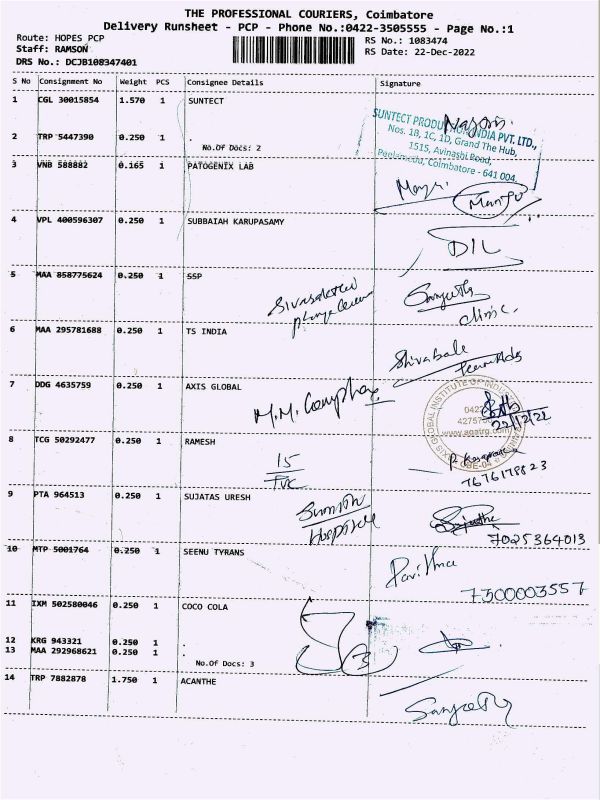 THE PROFESSIONAL COURIERS, Coimbatore
Delivery Runsheet - PCP - Phone No.:0422-3505555 - Page No.:1
Route: HOPES PCP
RS No.: 1083474
Staff: RAMSON
RS Date: 22-Dec-2022
DRS No.: DCJB108347401
S No Consignment No Weight PCS Consignee Details Signature
1 CGL 30015854 1.570 1 SUNTECT
SUNTECT PRODUCTION INDIA PVT. LTD.,
Nos. 1B, 1C, 1D, Grand The Hub,
1515, Avinashi Road,
Coimbatore - 641 004.
2 TRP 5447390 0.250 1 .
No.Of Docs: 2
3 VNB 588882 0.165 1 PATOGENIX LAB
4 VPL 400596307 0.250 1 SUBBAIAH KARUPASAMY
DIL
5 MAA 858775624 0.250 1 SSP
clinic.
6 MAA 295781688 0.250 1 TS INDIA
Shivabale
7 DDG 4635759 0.250 1 AXIS GLOBAL
M.M.
AXIS GLOBAL INSTITUTE OF
CBE-04
22/12/22
8 TCG 50292477 0.250 1 RAMESH
15
TVC
7676178823
9 PTA 964513 0.250 1 SUJATAS URESH
7025364013
10 MTP 5001764 0.250 1 SEENU TYRANS
Pavithra
7500003557
11 IXM 502580046 0.250 1 COCO COLA
12 KRG 943321 0.250 1 .
13 MAA 292968621 0.250 1 .
No.Of Docs: 3
3
14 TRP 7882878 1.750 1 ACANTHE